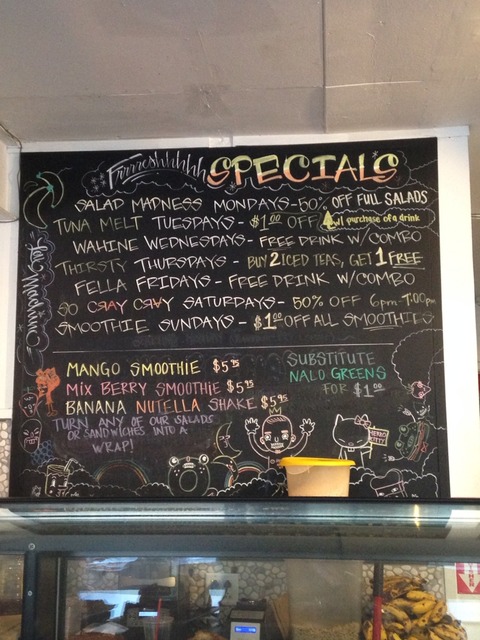 Frrrreshhhhh SPECIALS
SALAD MADNESS MONDAYS-50% OFF FULL SALADS
TUNA MELT TUESDAYS - $1.00 OFF w/ purchase of a drink
WAHINE WEDNESDAYS - FREE DRINK W/COMBO
THIRSTY THURSDAYS - BUY 2 ICED TEAS, GET 1 FREE
FELLA FRIDAYS - FREE DRINK W/COMBO
SO CRAY CRAY SATURDAYS - 50% OFF 6pm-7:00pm
SMOOTHIE SUNDAYS - $1.00 OFF ALL SMOOTHIES
MANGO SMOOTHIE $5.75
MIX BERRY SMOOTHIE $5.75
BANANA NUTELLA SHAKE $5.95
TURN ANY OF OUR SALADS
OR SANDWICHES INTO A
WRAP!
SUBSTITUTE
NALO GREENS
FOR $1.00